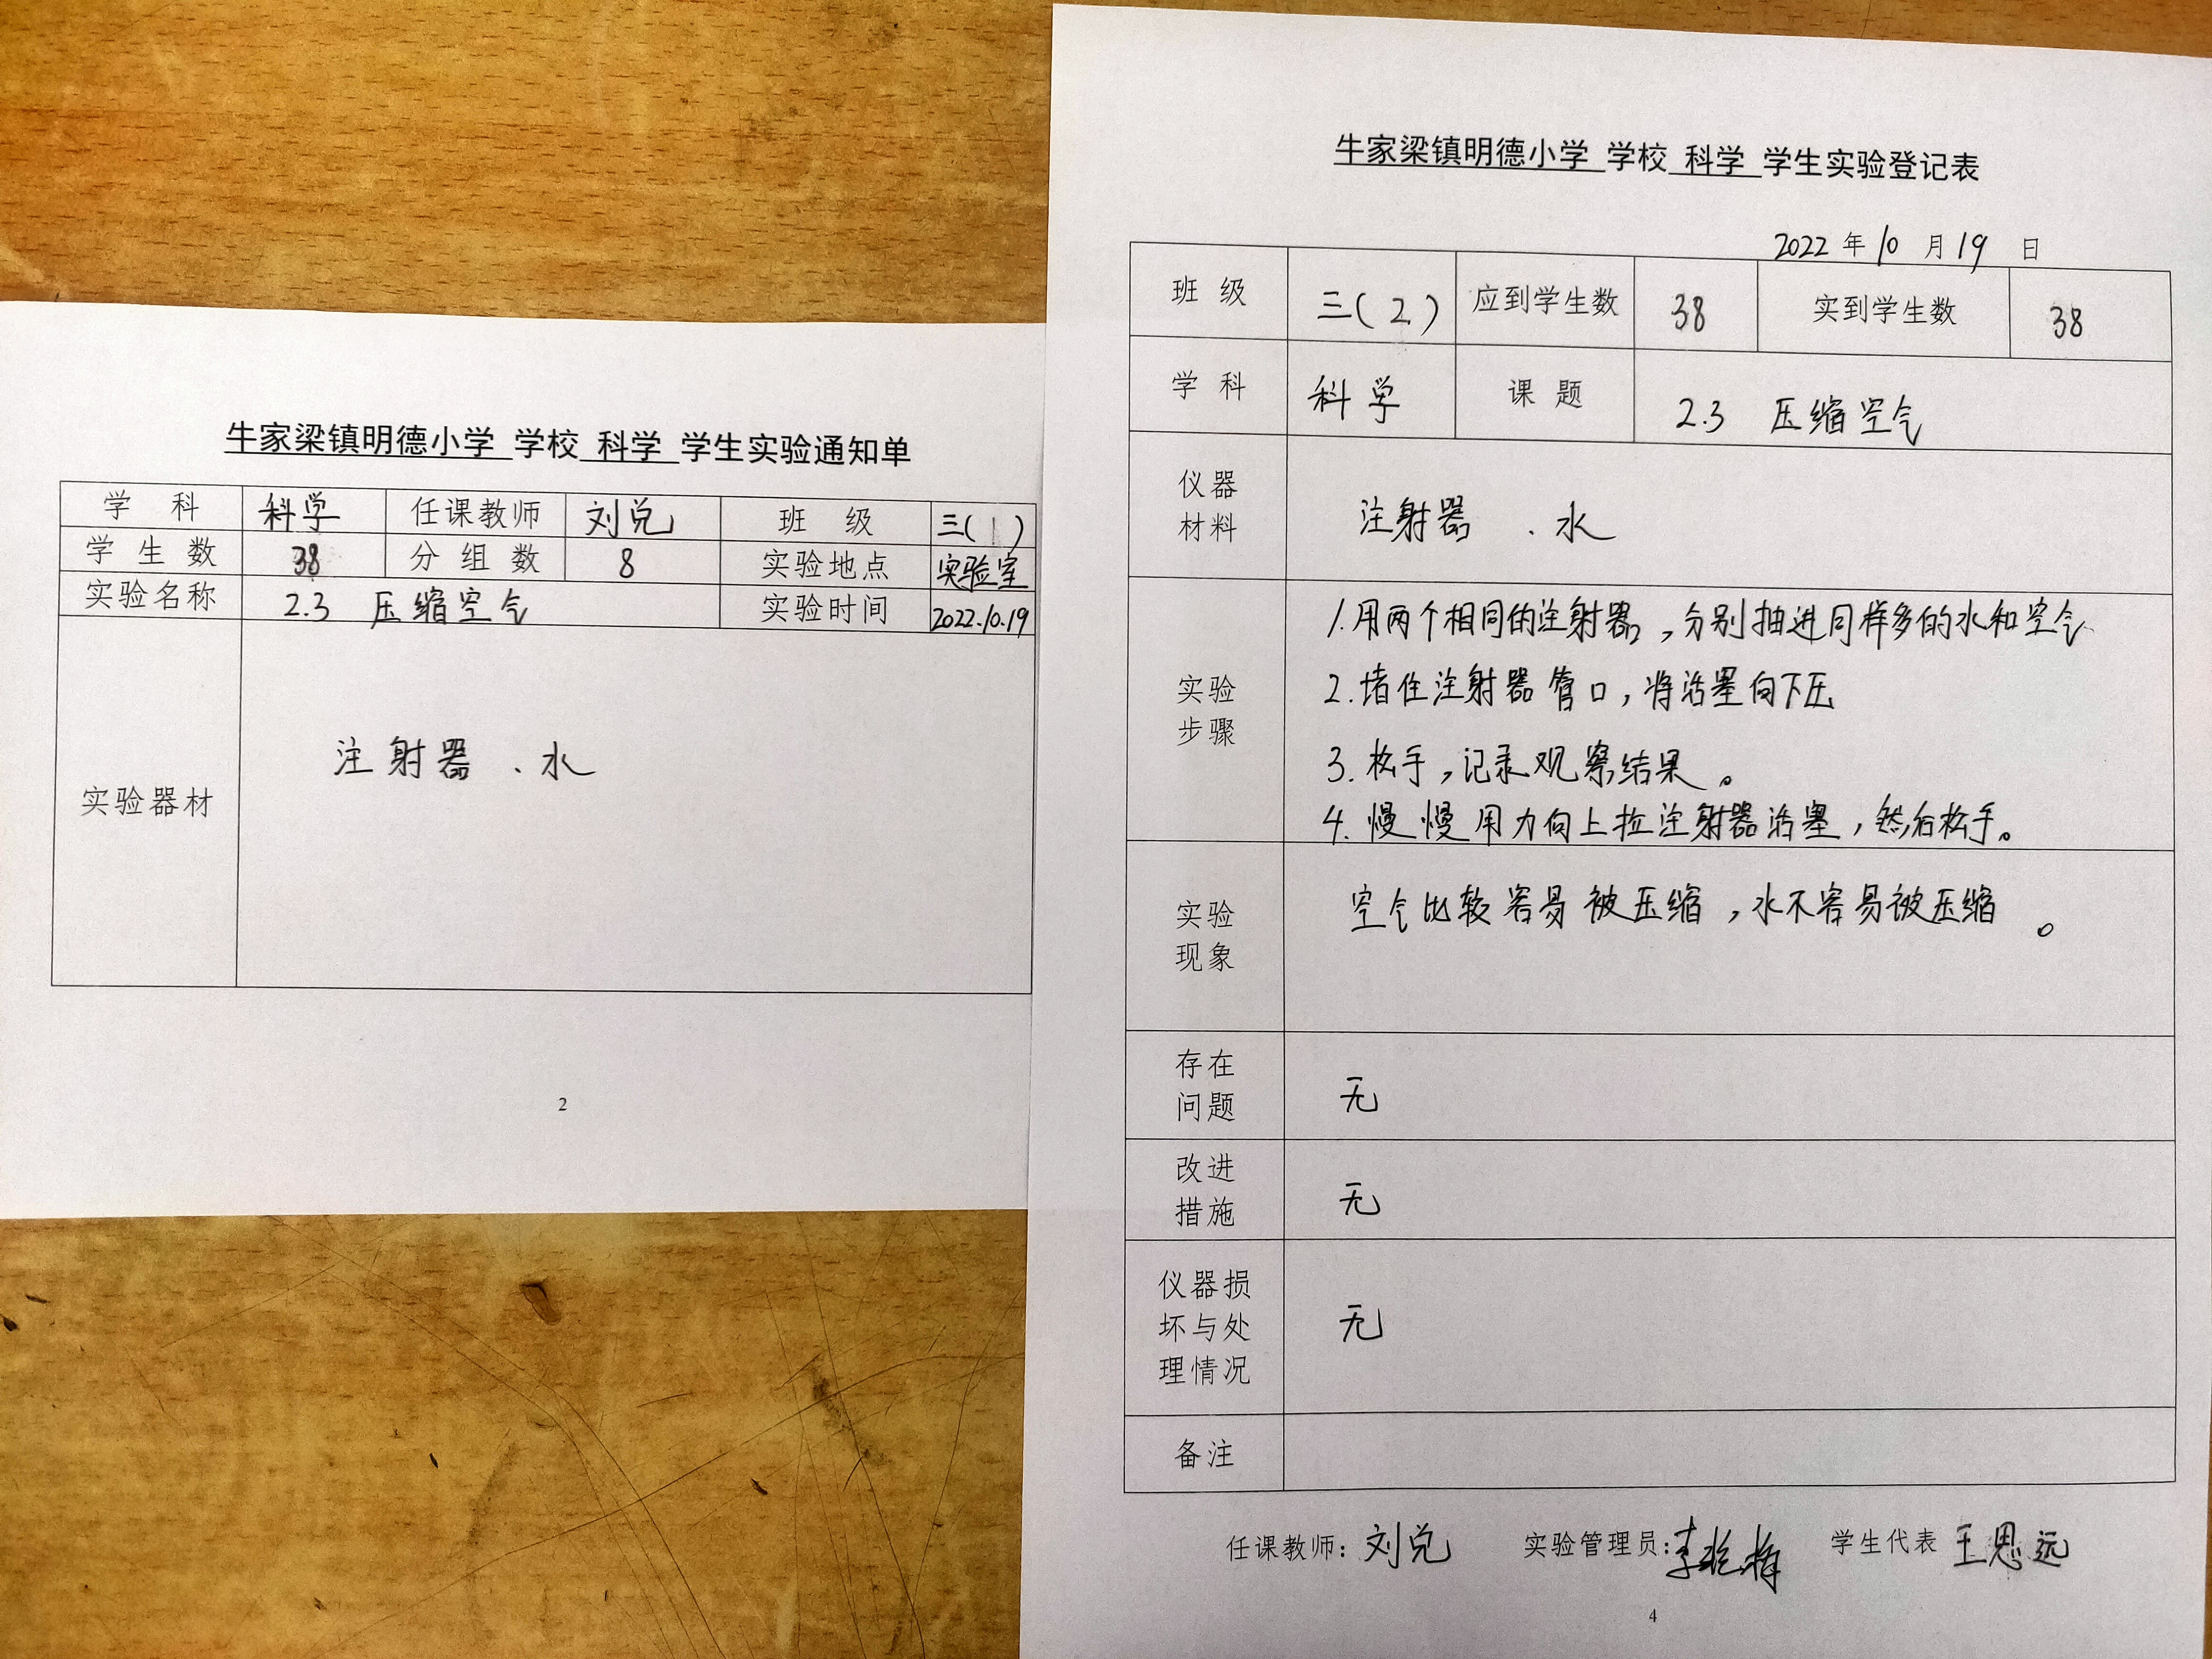 牛家梁镇明德小学 学校 科学 学生实验通知单
学 科 科学 任课教师 刘兑 班 级 三(1)
学 生 数 38 分 组 数 8 实验地点 实验室
实验名称 2.3 压缩空气 实验时间 2022.10.19
实验器材 注射器、水
2
牛家梁镇明德小学 学校 科学 学生实验登记表
2022 年 10 月 19 日
班 级 三(2) 应到学生数 38 实到学生数 38
学 科 科学 课 题 2.3 压缩空气
仪器
材料
注射器 、水
实验
步骤
1.用两个相同的注射器,分别抽进同样多的水和空气
2.堵住注射器管口,将活塞向下压
3.松手,记录观察结果。
4.慢慢用力向上拉注射器活塞,然后松手。
实验
现象
空气比较容易被压缩,水不容易被压缩。
存在
问题
无
改进
措施
无
仪器损
坏与处
理情况
无
备注
任课教师:刘兑 实验管理员:李 梅 学生代表 王思远
4